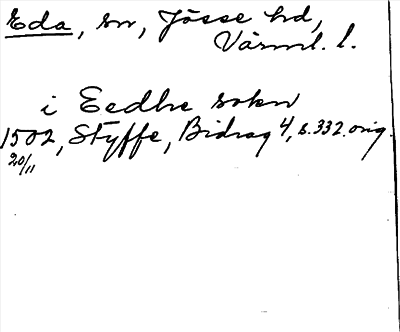 Eda, sn, Jösse hd,
Värml. l.
i Eedhe sokn
1502, Styffe, Bidrag 4, s. 332. orig.
20/11